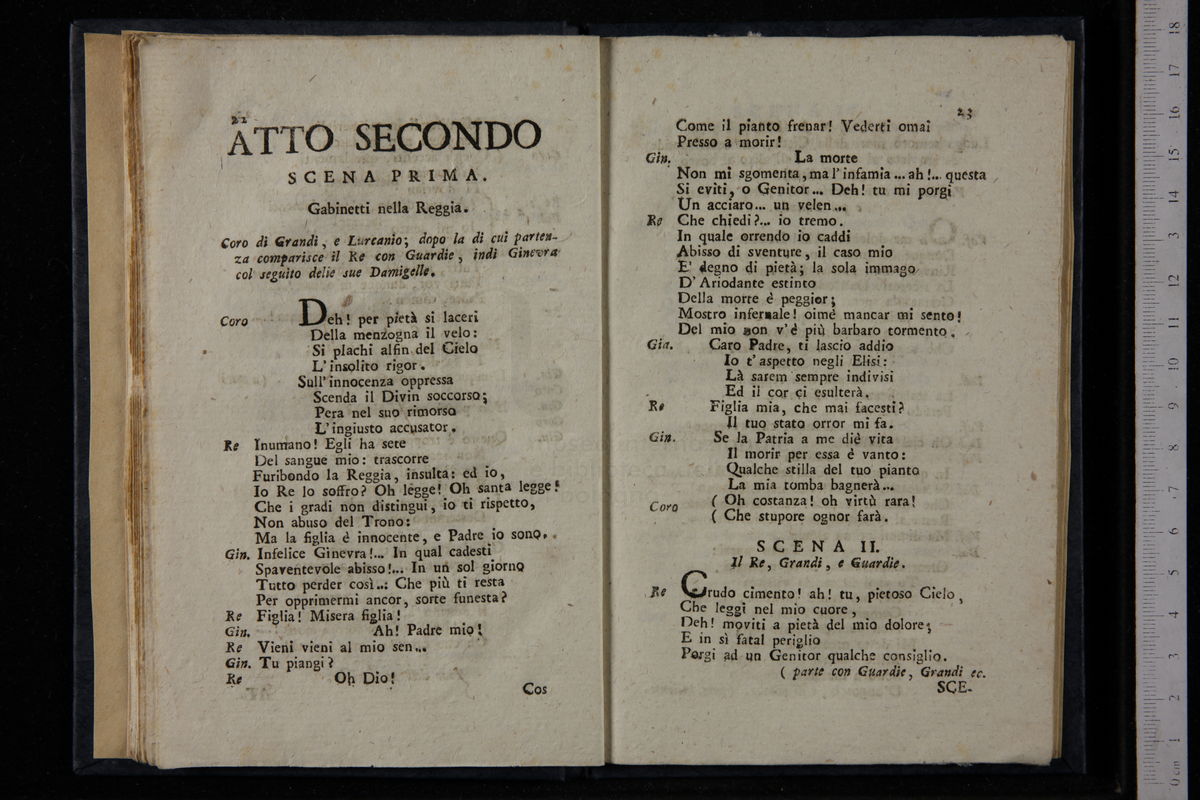 22
ATTO SECONDO
SCENA PRIMA.
Gabinetti nella Reggia.
Coro di Grandi, e Lurcanio; dopo la di cui parten-
za comparisce il Re con Guardie, indi Ginevra
col seguito delle sue Damigelle.
Coro Deh! per pietà si laceri
Della menzogna il velo:
Si plachi alfin del Cielo
L'insolito rigor.
Sull'innocenza oppressa
Scenda il Divin soccorso;
Pera nel suo rimorso
L'ingiusto accusator.
Re Inumano! Egli ha sete
Del sangue mio: trascorre
Furibondo la Reggia, insulta: ed io,
Io Re lo soffro? Oh legge! Oh santa legge!
Che i gradi non distingui, io ti rispetto,
Non abuso del Trono:
Ma la figlia è innocente, e Padre io sono.
Gin. Infelice Ginevra!... In qual cadesti
Spaventevole abisso!... In un sol giorno
Tutto perder così..: Che più ti resta
Per opprimermi ancor, sorte funesta?
Re Figlia! Misera figlia!
Gin. Ah! Padre mio!
Re Vieni vieni al mio sen...
Gin. Tu piangi?
Re Oh Dio!
Cos
23
Come il pianto frenar! Vederti omai
Presso a morir!
Gin. La morte
Non mi sgomenta, ma l'infamia ... ah!... questa
Si eviti, o Genitor... Deh! tu mi porgi
Un acciaro... un velen...
Re Che chiedi?... io tremo.
In quale orrendo io caddi
Abisso di sventure, il caso mio
E' degno di pietà; la sola immago
D'Ariodante estinto
Della morte è peggior;
Mostro infernale! oimè mancar mi sento!
Del mio non v'è più barbaro tormento.
Gin. Caro Padre, ti lascio addio
Io t'aspetto negli Elisi:
Là sarem sempre indivisi
Ed il cor ci esulterà.
Re Figlia mia, che mai facesti?
Il tuo stato orror mi fa.
Gin. Se la Patria a me diè vita
Il morir per essa è vanto:
Qualche stilla del tuo pianto
La mia tomba bagnerà...
Coro ( Oh costanza! oh virtù rara!
( Che stupore ognor farà.
SCENA II.
Il Re, Grandi, e Guardie.
Re Crudo cimento! ah! tu, pietoso Cielo,
Che leggi nel mio cuore,
Deh! moviti a pietà del mio dolore;
E in sì fatal periglio
Porgi ad un Genitor qualche consiglio.
( parte con Guardie, Grandi ec.
SCE-
0 cm 1 2 3 4 5 6 7 8 9 10 11 12 13 14 15 16 17 18